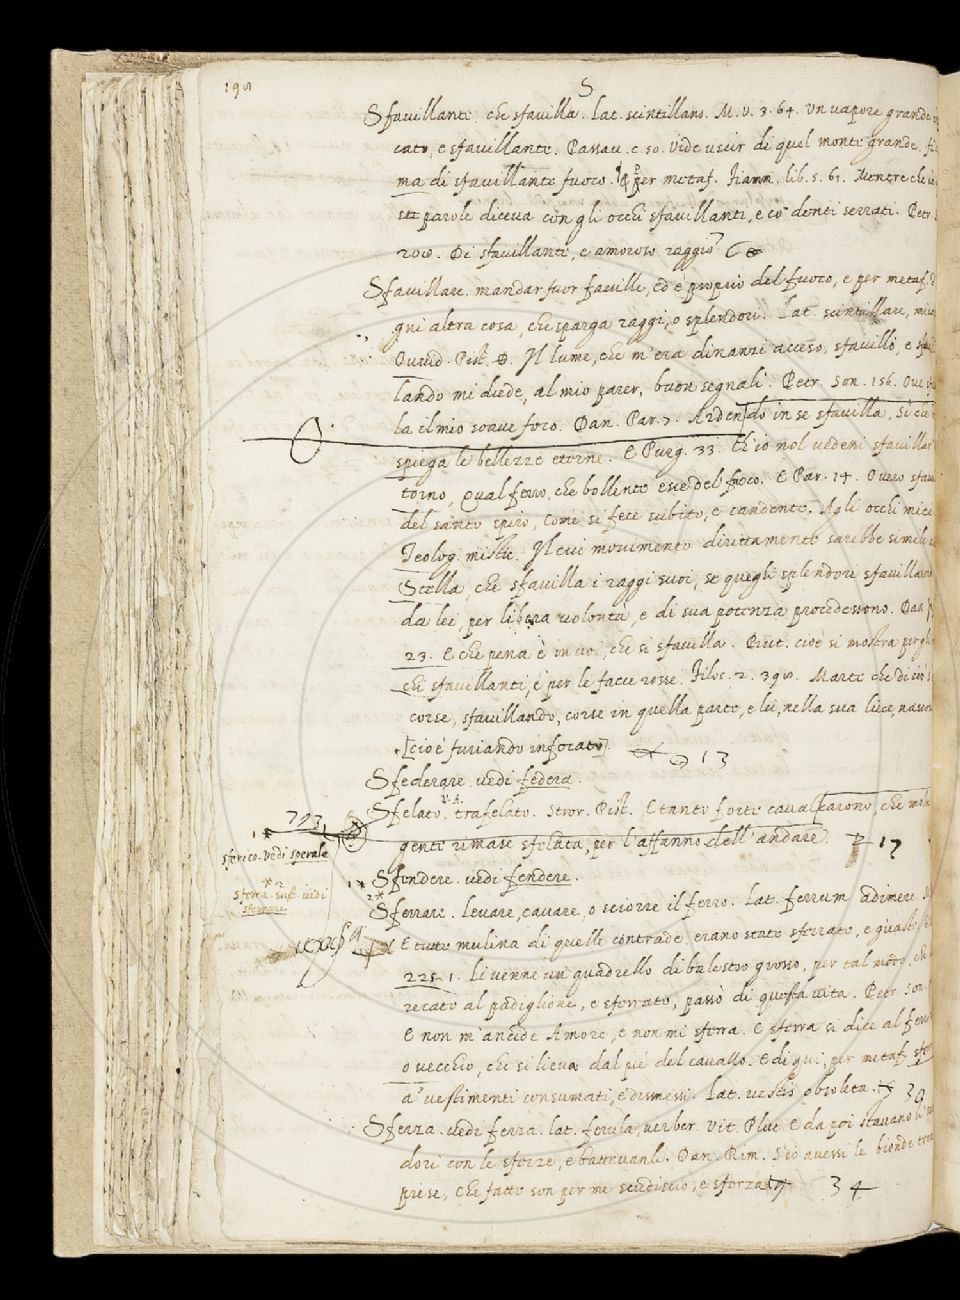 198
S
Sfavillante. che sfavilla. Lat. scintillans. M. V. 3. 64. Un vapore grande
cato, e sfavillante. Passav. c. 50. Vide uscir di quel monte grande,
ma di sfavillante fuoco. ¶ per metaf. Fiamm. lib. 5. 61. Mentre che
parole diceva con gli occhi sfavillanti, e co denti serrati. Petr.
208. Di sfavillante, e amoroso raggio
Sfavillare. mandar fuor faville, ed è proprio del fuoco, e per metaf.
gni altra cosa, che sparga raggi, o splendori. Lat. scintillare,
Ovvid. Pist. D. Il lume, che m'era dinanzi acceso, sfavillò, e
lando mi diede, al mio parer, buon segnali. Petr. Son. 156. Ove
la il mio soave foco. Dan. Par. 7. Ardendo in se sfavilla, Sì che
spiega le bellezze eterne. E Purg. 33. Ch'io nol vedessi sfavillar
torno, Qual ferro, che bollente esce del fuoco. E Par. 14. O vero
del santo spiro, Come si fece subito, e candente. Agli occhi miei
Teolog. mistic. Il cui movimento dirittamente sarebbe simile
Stella, che sfavilla i raggi suoi, se quegli splendori
da lei, per libera volontà, e di sua potenzia procedessono. Dan.
23. E che pena è in voi, che sì sfavilla. But. cioè si mostra per gli
chi sfavillanti, e per le facce rosse. Filoc. 2. 398. Marte che di
corse, sfavillando, corse in quella parte, e lei, nella sua luce,
[cioè furiando infocato] 13
Sfederare. vedi federa.
V.A.
Sfelato. trafelato. Stor. Pist. E tanto forte cavalcarono, che
gente rimase sfelata, per l'affanno dell'andare. 17
793
1*
sferico. vedi sperale
1* Sfendere. vedi fendere.
*2
sferra. sust. vedi
sferrare
2*
Sferrare. levare, cavare, o sciorre il ferro. Lat. ferrum adimere.
E tutte mulina di quelle contrade erano state sferrate, e guaste.
225. 1. Li venne un quadrello di balestro grosso, per tal modo, che
recato al padiglione, e sferrato, passò di questa vita. Petr. Son.
E non m'ancide Amore, e non mi sferra. E sferra si dice al ferro
o vecchio, che si lieva dal piè del cavallo. E di qui, per metaf.
a' vestimenti consumati, e dismessi. Lat. vestis obsoleta. 30
Sferza. vedi ferza. lat. ferula, verber. Vit. Plut. E da poi stavano
dori con le sferze, e battevanli. Dan. Rim. S'io avessi le bionde
prese, Che fatte son per me scudiscio, e sferza. 34